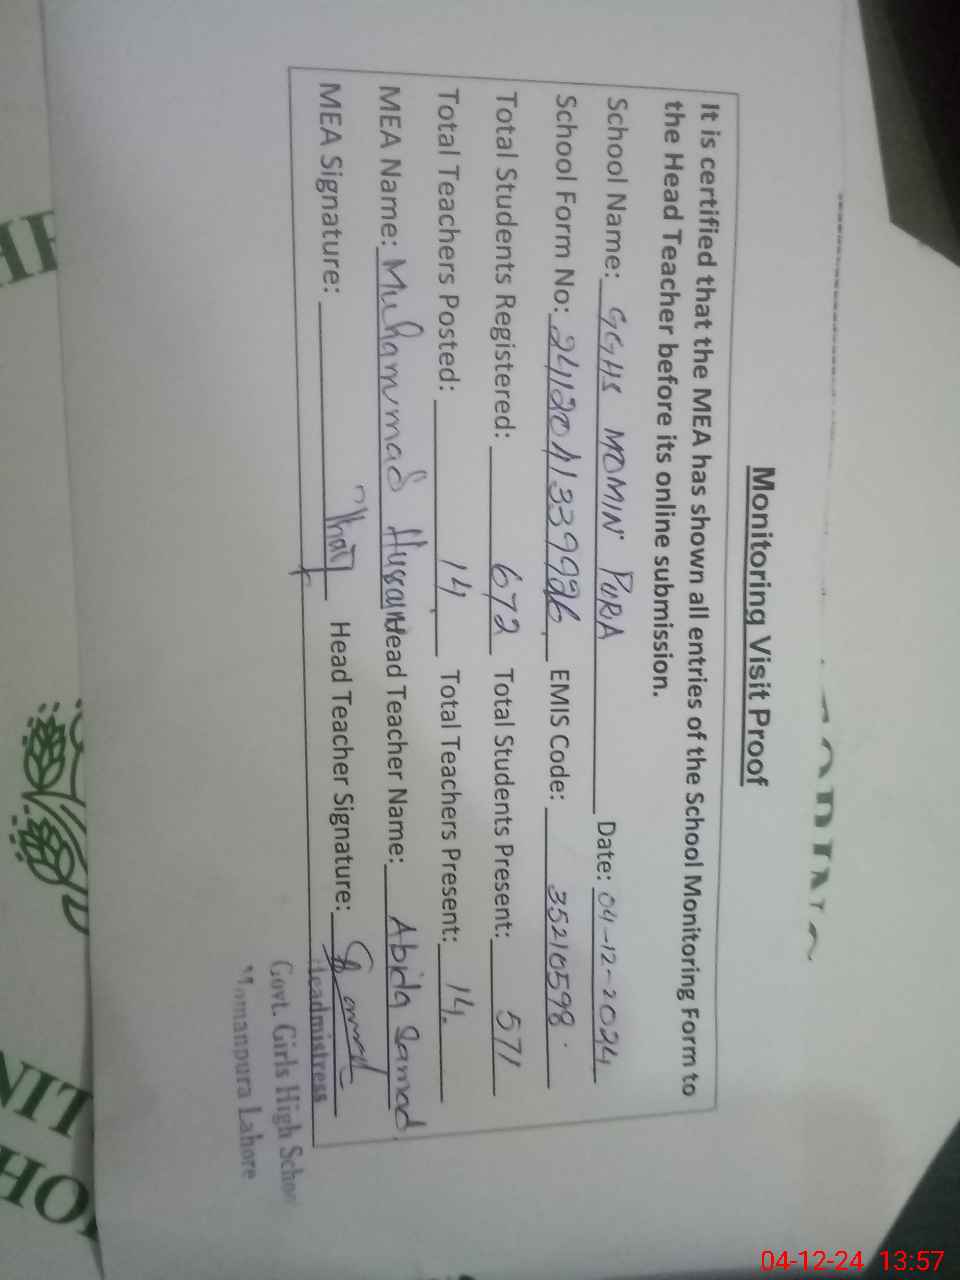 Monitoring Visit Proof
It is certified that the MEA has shown all entries of the School Monitoring Form to
the Head Teacher before its online submission.
School Name: GGHS MOMIN PURA Date: 04-12-2024
School Form No: 241204133992 EMIS Code: 35210598
Total Students Registered: 672 Total Students Present: 571
Total Teachers Posted: 14 Total Teachers Present: 14.
MEA Name: Muhammad Hussain Head Teacher Name: Abida Samad
MEA Signature: Head Teacher Signature:
Headmistress
Govt. Girls High School
Momanpura Lahore
04-12-24 13:57